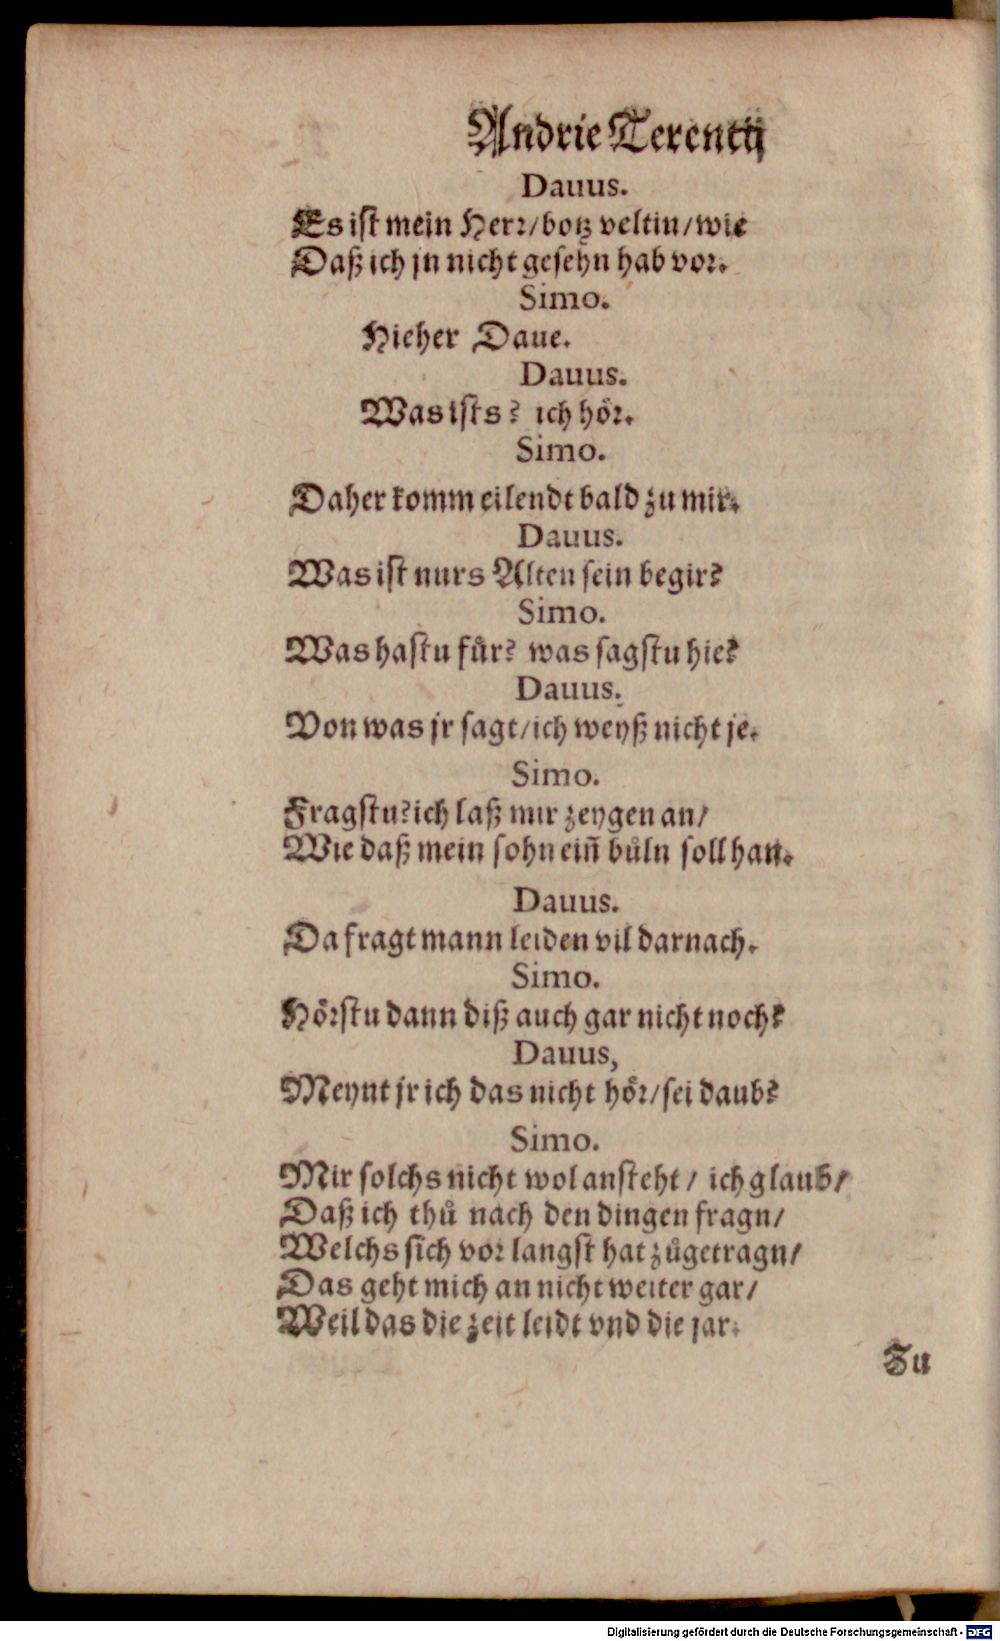 Andrie Terentij
Dauus.
Es ist mein Herr/botz veltin/wie
Daß ich jn nicht gesehn hab vor.
Simo.
Hieher Daue.
Dauus.
Was ists? ich hör.
Simo.
Daher komm eilendt bald zu mir.
Dauus.
Was ist nurs Alten sein begir?
Simo.
Was hastu fuͤr? was sagstu hie?
Dauus.
Von was jr sagt/ich weyß nicht je.
Simo.
Fragstu? ich laß mir zeygen an/
Wie daß mein sohn ein̄ buͤln soll han.
Dauus.
Da fragt mann leiden vil darnach.
Simo.
Hoͤrstu dann diß auch gar nicht noch?
Dauus,
Meynt jr ich das nicht hoͤr/sei daub?
Simo.
Mir solchs nicht wol ansteht/ ich glaub/
Daß ich thů nach den dingen fragn/
Welchs sich vor langst hat zůgetragn/
Das geht mich an nicht weiter gar/
Weil das die zeit leidt vnd die jar.
Zu
Digitalisierung gefördert durch die Deutsche Forschungsgemeinschaft - DFG